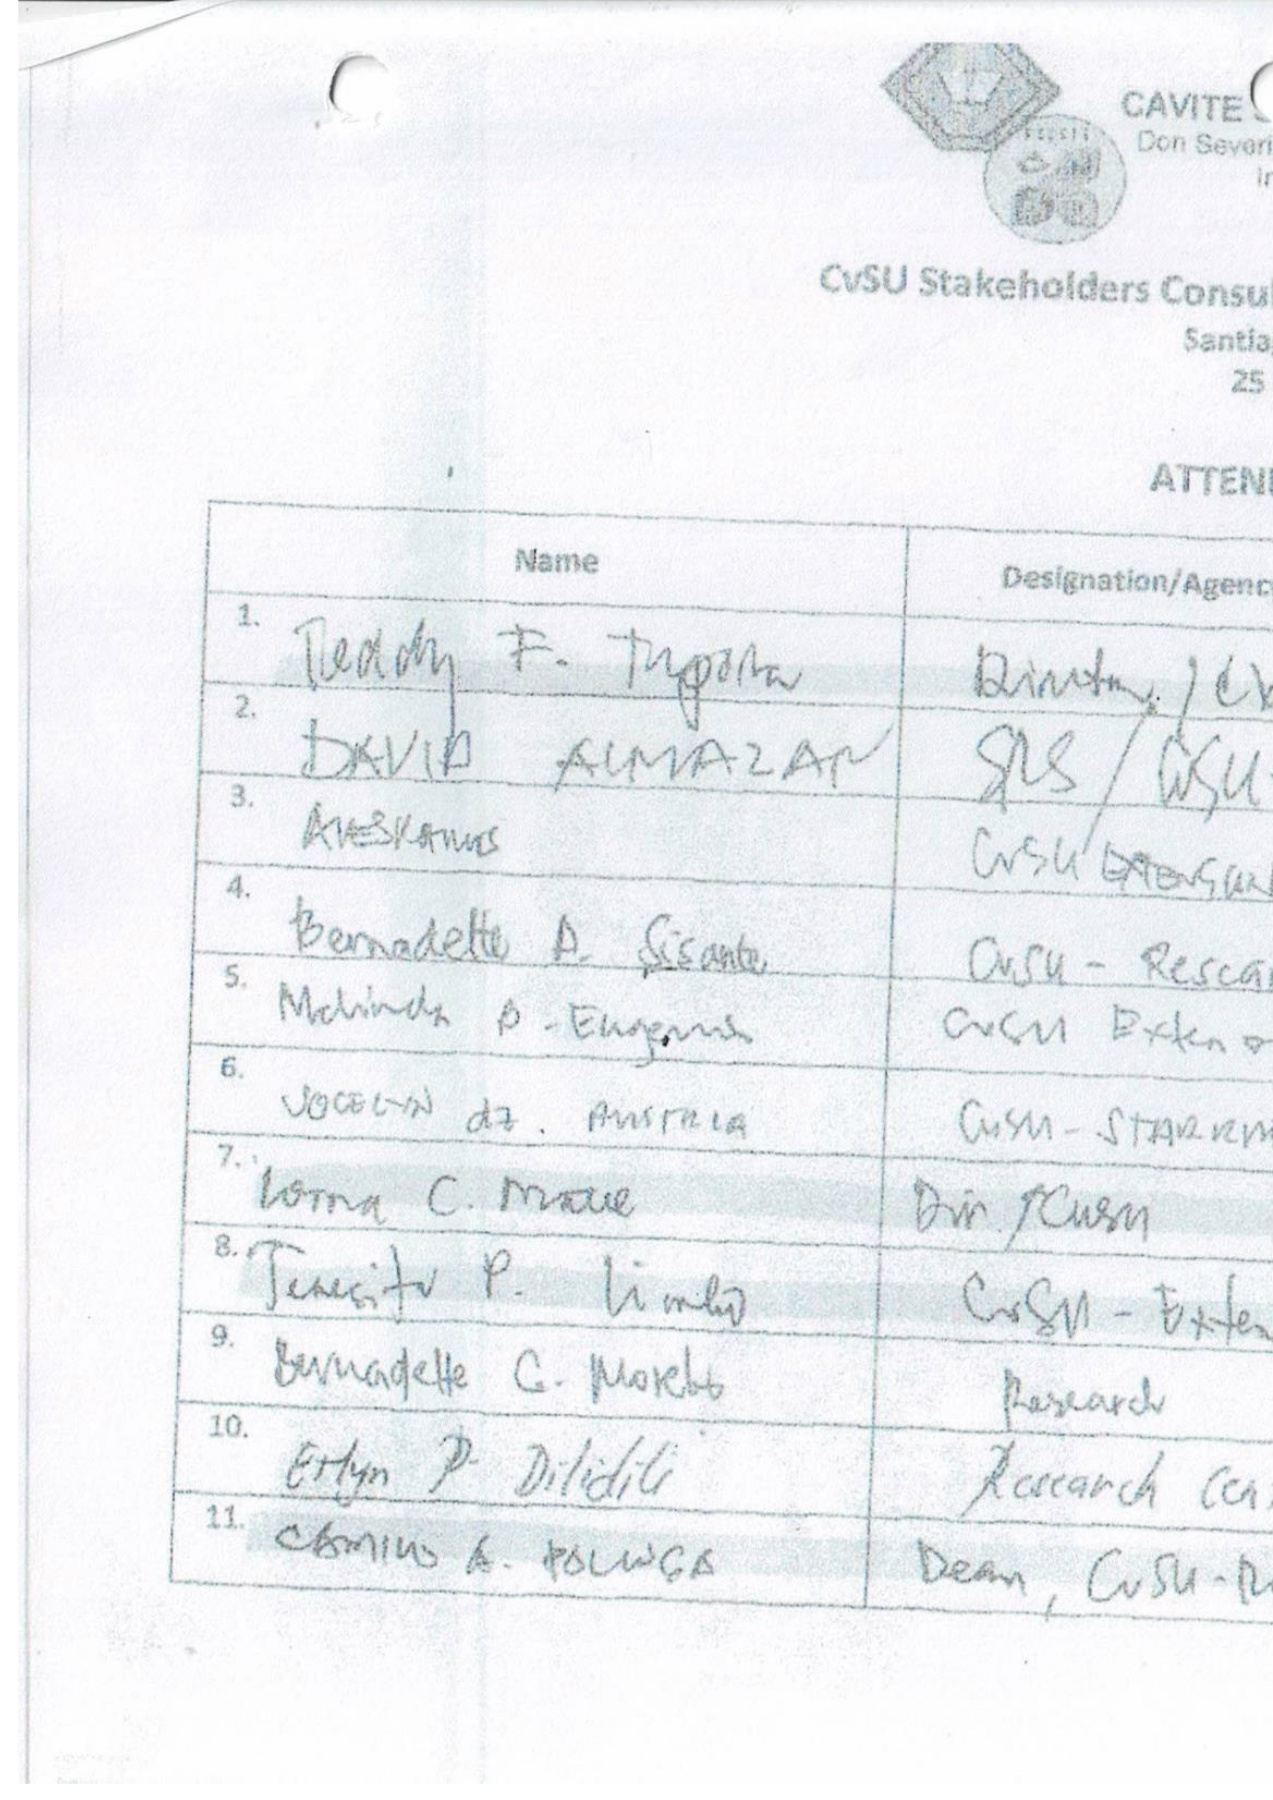 CAVITE
Don Severi
In
CvSU Stakeholders Consul
Santia
25
ATTEN
Name Designation/Agenc
1. Teddy F. / Cv
2. DAVID ALMAZAN SRS / CvSU
3. CvSU
4. Bernadette A. Sisante CvSU - Resear
5. CvSU Exten
6. JOCELYN dz. AUSTRIA CvSU - STARRD
7. Lorna C. Matel Dir. / CvSU
8. Teresita P. Limbo CvSU - Exten
9. Bernadette C. Research
10. Erlyn P. Dilidili Research Cen
11. CAMILO A. POLINGA Dean, CvSU - R